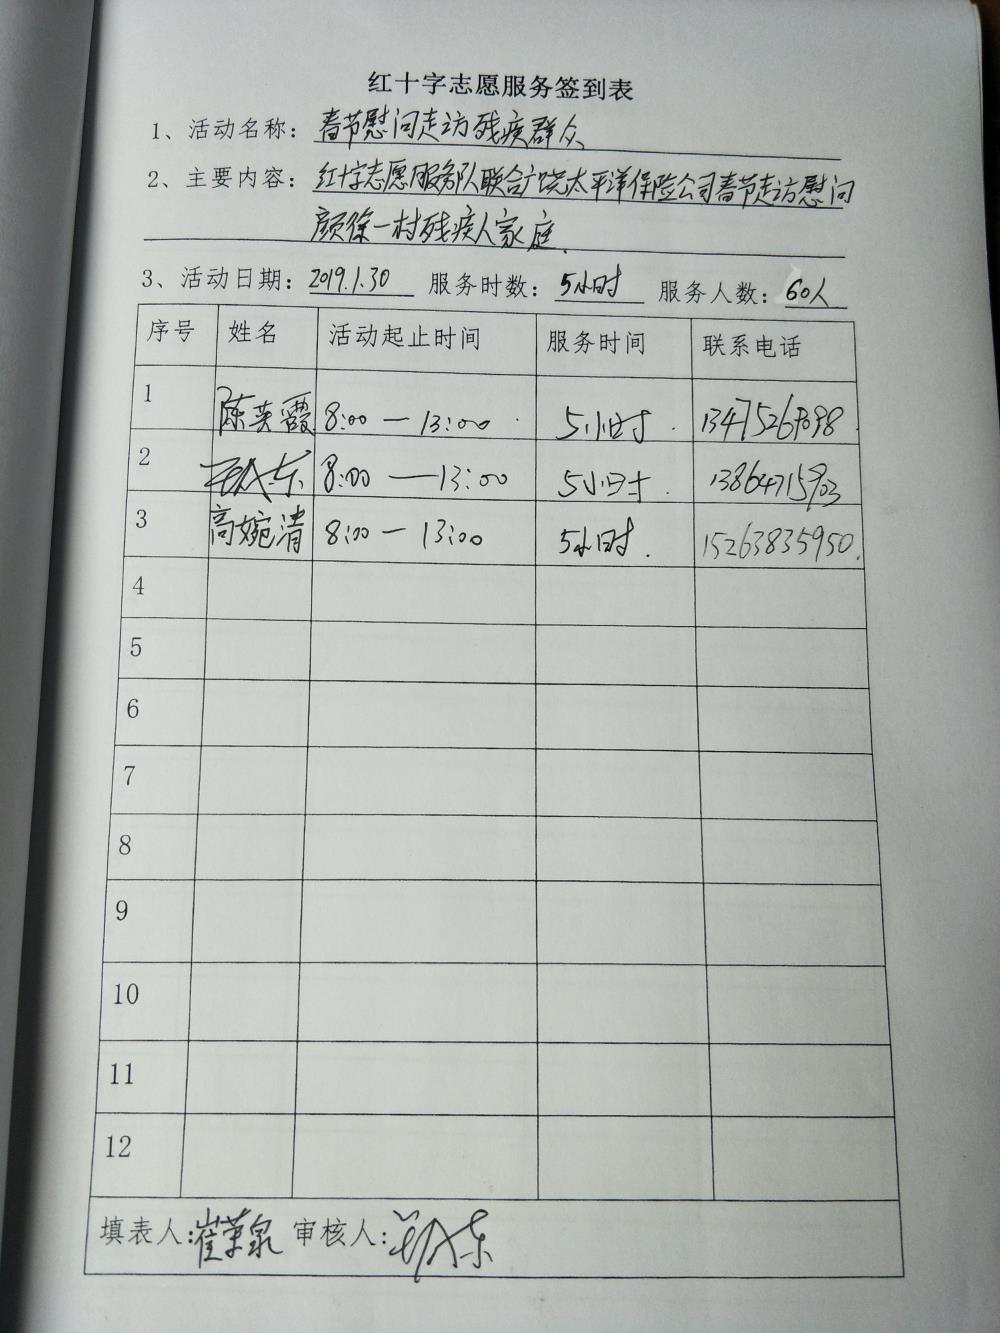 红十字志愿服务签到表
1、活动名称：春节慰问走访残疾群众
2、主要内容：红十字志愿服务队联合广饶太平洋保险公司春节走访慰问
颜徐一村残疾人家庭.
3、活动日期：2019.1.30 服务时数：5小时 服务人数：60人
序号 姓名 活动起止时间 服务时间 联系电话
1 陈英霞 8:00—13:00 5小时.
2 8:00—13:00 5小时. 13864715903
3 高婉清 8:00—13:00 5小时. 15263835950.
4
5
6
7
8
9
10
11
12
填表人：崔荣泉 审核人：